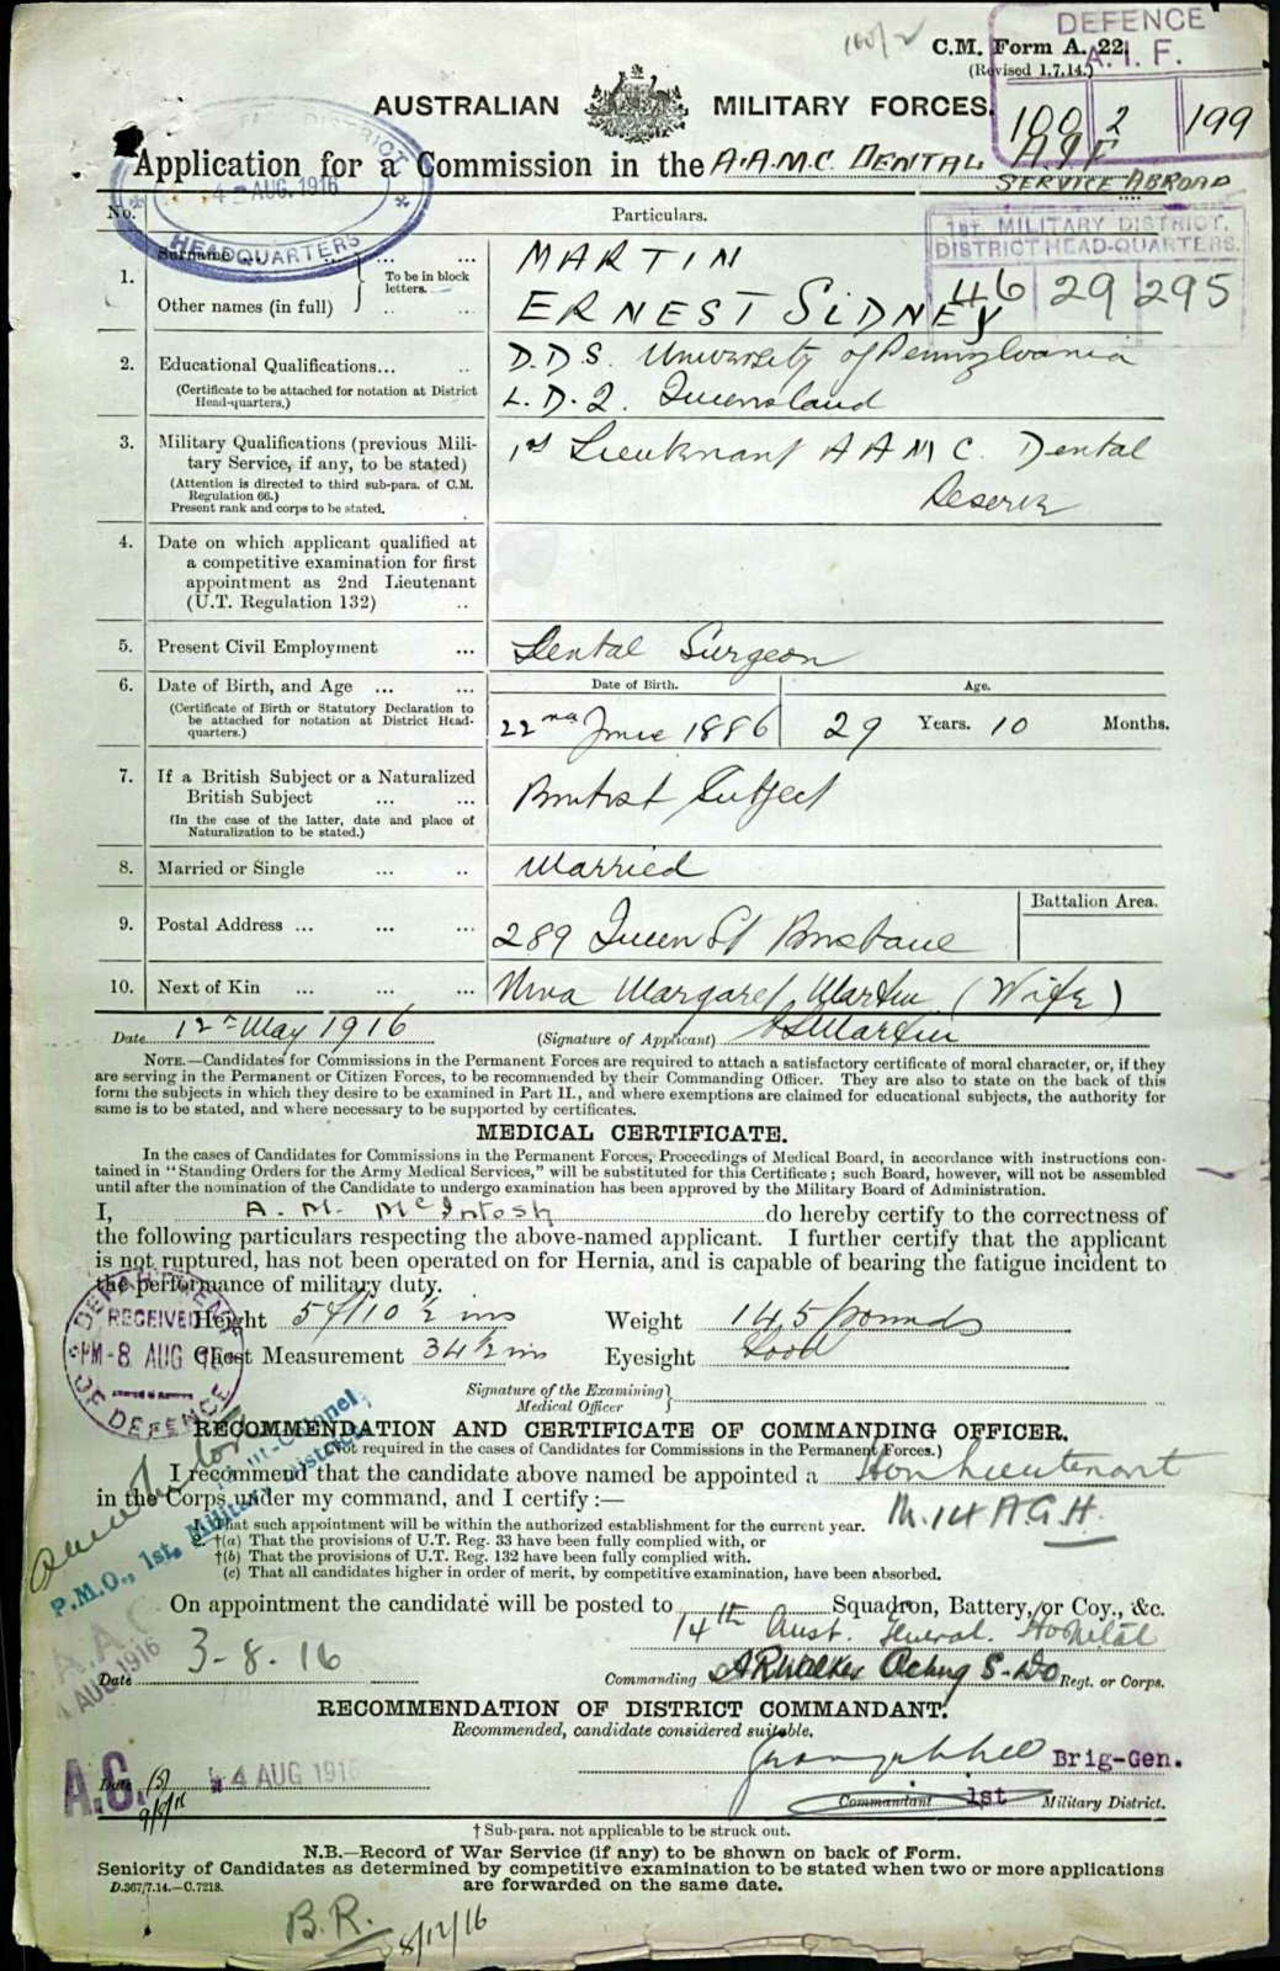 100/2
C.M. Form A. 22.
(Revised 1.7.14.)
DEFENCE
A.I.F.
100 2 199
AUSTRALIAN MILITARY FORCES.
Application for a Commission in the A.A.M.C. DENTAL A.I.F
SERVICE ABROAD
DISTRICT
4 - AUG. 1916
HEADQUARTERS
1ST. MILITARY DISTRICT.
DISTRICT HEAD-QUARTERS.
46 29 295
No. Particulars.
1. Surname ... ... MARTIN
To be in block letters.
Other names (in full) .. ... ERNEST SIDNEY
2. Educational Qualifications... .. D.D.S. University of Pennsylvania
(Certificate to be attached for notation at District
Head-quarters.) L.D.Q. Queensland
3. Military Qualifications (previous Mili- 1st Lieutenant A A M C. Dental
tary Service, if any, to be stated)
(Attention is directed to third sub-para. of C.M.
Regulation 66.) Reserve
Present rank and corps to be stated.
4. Date on which applicant qualified at
a competitive examination for first
appointment as 2nd Lieutenant
(U.T. Regulation 132) ..
5. Present Civil Employment ... Dental Surgeon
6. Date of Birth, and Age ... ... Date of Birth. Age.
(Certificate of Birth or Statutory Declaration to
be attached for notation at District Head-
quarters.) 22nd June 1886 29 Years. 10 Months.
7. If a British Subject or a Naturalized
British Subject ... ... British Subject
(In the case of the latter, date and place of
Naturalization to be stated.)
8. Married or Single ... .. Married
Battalion Area.
9. Postal Address ... ... ... 289 Queen St Brisbane
10. Next of Kin ... ... ... Margaret Martin (Wife)
Date 12th May 1916 (Signature of Applicant) E S Martin
NOTE.—Candidates for Commissions in the Permanent Forces are required to attach a satisfactory certificate of moral character, or, if they
are serving in the Permanent or Citizen Forces, to be recommended by their Commanding Officer. They are also to state on the back of this
form the subjects in which they desire to be examined in Part II., and where exemptions are claimed for educational subjects, the authority for
same is to be stated, and where necessary to be supported by certificates.
MEDICAL CERTIFICATE.
In the cases of Candidates for Commissions in the Permanent Forces, Proceedings of Medical Board, in accordance with instructions con-
tained in "Standing Orders for the Army Medical Services," will be substituted for this Certificate; such Board, however, will not be assembled
until after the nomination of the Candidate to undergo examination has been approved by the Military Board of Administration.
I, A. M. McIntosh do hereby certify to the correctness of
the following particulars respecting the above-named applicant. I further certify that the applicant
is not ruptured, has not been operated on for Hernia, and is capable of bearing the fatigue incident to
the performance of military duty.
DEPARTMENT
RECEIVED
PM-8 AUG 16
OF DEFENCE
Height 5ft 10 ½ ins Weight 145 pounds
Chest Measurement 34 ½ in Eyesight Good
Signature of the Examining
Medical Officer
RECOMMENDATION AND CERTIFICATE OF COMMANDING OFFICER.
(Not required in the cases of Candidates for Commissions in the Permanent Forces.)
I recommend that the candidate above named be appointed a Hon Lieutenant
in the Corps under my command, and I certify :—
14 A.G.H.
1. That such appointment will be within the authorized establishment for the current year.
2. †(a) That the provisions of U.T. Reg. 33 have been fully complied with, or
†(b) That the provisions of U.T. Reg. 132 have been fully complied with.
(c) That all candidates higher in order of merit, by competitive examination, have been absorbed.
Lieut-Colonel,
P.M.O., 1st. Military District.
On appointment the candidate will be posted to Squadron, Battery, or Coy., &c.
14th Aust. General. Hospital
A.A.G.
4 AUG 1916
Date 3-8.16 Commanding Regt. or Corps.
RECOMMENDATION OF DISTRICT COMMANDANT.
Recommended, candidate considered suitable.
Brig-Gen.
A.G.
Date 4 AUG 1916
Commandant 1st Military District.
† Sub-para. not applicable to be struck out.
N.B.—Record of War Service (if any) to be shown on back of Form.
Seniority of Candidates as determined by competitive examination to be stated when two or more applications
D.367/7.14.—C.7218. are forwarded on the same date.
B.R.
8/12/16